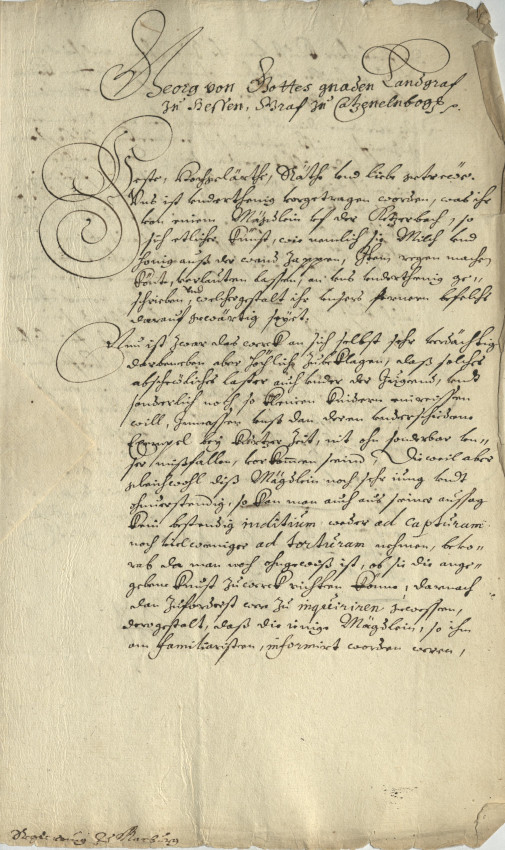 Georg von Gottes gnaden Landgraf
zu Hessen, Graf zu Catzenelnbog p.
Veste, Hochgelärthe, Räthe vnd liebe getrewe.
Vns ist vnderthenig vorgetragen worden, was ihr
von einem Mägdlein vf der Ritterbach, so
sich etlicher Kunst, wie nemlich sie Milch vnd
Honig auß der wand zappen, regen machen
könte, verlauten lassen, an vns vnderthenig ge-
schrieben, vnd welchergestalt ihr vnsers fernern befelchs
darauf gewärtig seyet.
Nun ist zwar das werck an sich selbst sehr verdächtig
darneben aber höchlich zubeklagen, daß solches
abscheuliches laster auch vnder der Jugend, vnd
sonderlich noch so kleinen Kindern einreissen
will, Inmassen vnß dan deren vnderschiedene
Exempel bey kurtzer Zeit, nit ohn sonderbar vn-
ser mißfallen, vorkommen seind, Dieweil aber
gleichwohl diß Mägdlein noch sehr iung vndt
ohnverstendig, so kan man auch aus seiner aussag
kein bestendig inditium, weder ad capturam
noch viel weniger ad torturam nehmen, bevo-
rab da man noch ohngewiß ist, ob sie die ange-
gebene Kunst zu werck richten könne, darnach
dan zuforderst wer zu inquiriren gewessen,
dergestalt, daß die ienige Mägdlein, so ihm
am familiaristen, informirt worden weren,
zu Marburg